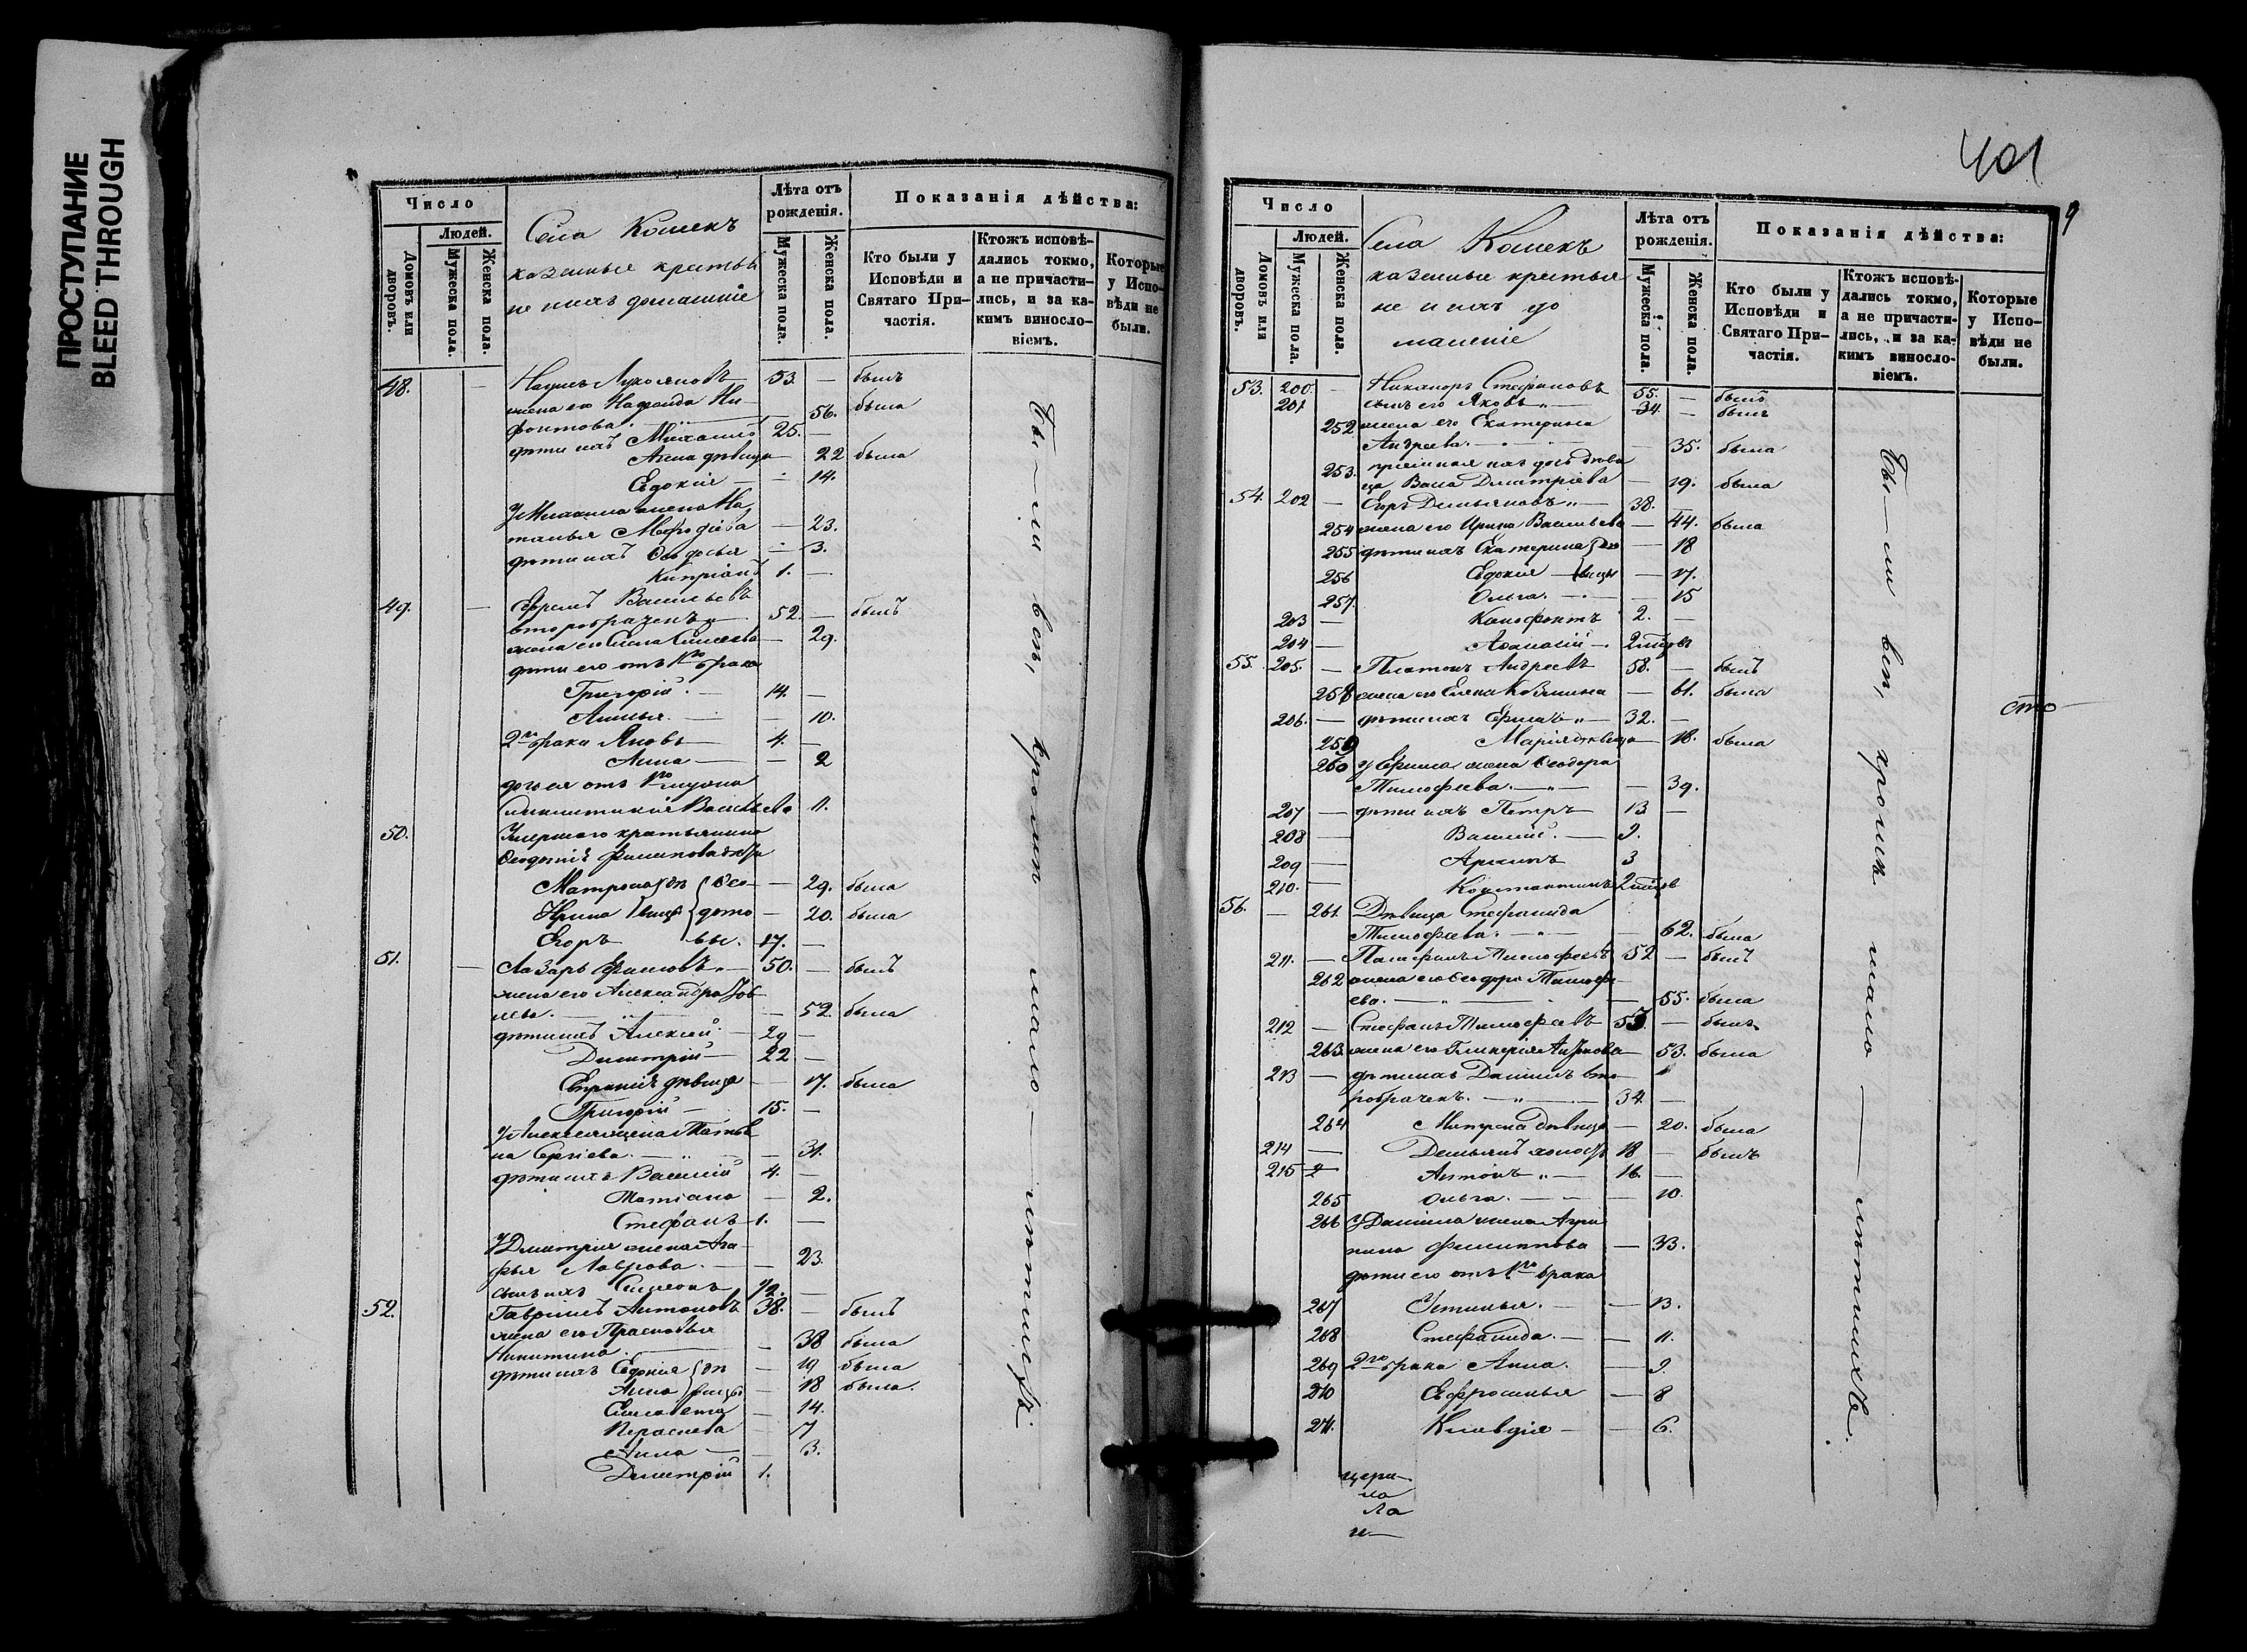 ПРОСТУПАНИЕ
BLEED THROUGH
Число
Людей.
Домовъ или дворовъ.
Мужеска пола.
Женска пола.
Села Кошекъ
казенные крестья
не и ихъ домашніе
Лѣта отъ рожденія.
Мужеска пола.
Женска пола.
Показанія дѣйства:
Кто были у Исповѣди и Святаго Причастія.
Ктожъ исповѣдались токмо, а не причастились, и за какимъ винословіемъ.
Которые у Исповѣди не были.
48. — Наумъ Лукояновъ 53. — былъ
жена его
фонтова — 56. была
дѣти ихъ Михаилъ 25. —
Анна дѣвица — 22 была
Евдокія — 14.
У Михаила жена На
талья Меѳодіева — 23.
дѣти ихъ Ѳеодосья — 3.
Кипріанъ 1. —
49. — Ефремъ Васильевъ
второбраченъ 52. — былъ
жена его Елена — 29.
дѣти его отъ 1го брака
Григорій 14. —
Анна — 10.
2го брака Яковъ 4. —
Анна — 2
дочь ея отъ 1го мужа
Васильева 11.
50. Умершаго крестьянина
Филипова дѣти
Матрона дѣ Ѳео — 29. была
Ирина вицы дото — 20. была
Егоръ вы. 17. —
51. — Лазарь 50. — былъ
жена его Александра
лева — 52. была
дѣти ихъ Алексей 29 —
Димитрій 22 —
дѣвица — 17. была
Григорій 15. —
У Алексея жена Татья
на Сергіева — 31.
дѣти ихъ Василій 4. —
Татіана — 2.
Стефанъ 1. —
У Димитрія жена Ага
фья Лаврова — 23.
сынъ ихъ Симеонъ 1/2. —
52. Гавріилъ Антоновъ 38. — былъ
жена его Прасковья
Никитина — 38 была
дѣти ихъ Евдокія дѣ — 19 была
Анна вицы — 18 была.
Елисавета — 14.
Параскева — 7
Анна — 3.
Димитрій 1.
Бы — ли вси, кромѣ мало — лѣтнихъ.
401
9
Число
Людей.
Домовъ или дворовъ.
Мужеска пола.
Женска пола.
Села Кошекъ
казенные крестья
не и ихъ до
машніе
Лѣта отъ рожденія.
Мужеска пола.
Женска пола.
Показанія дѣйства:
Кто были у Исповѣди и Святаго Причастія.
Ктожъ исповѣдались токмо, а не причастились, и за какимъ винословіемъ.
Которые у Исповѣди не были.
53. 200. — Никаноръ Стефановъ 55. — былъ
201 сынъ его Яковъ 34. — былъ
252 жена его Екатерина
Андреева — 35. была
253. пріемная ихъ дочь дѣви
ца Васса Димитріева — 19. была
54. 202 — Егоръ Демьяновъ 38.
254 жена его Ирина Васильева — 44. была
255 дѣти ихъ Екатерина дѣ — 18
256 Евдокія вицы — 17.
257. Ольга — 15
203 — Ксенофонтъ 2. —
204 — Аѳанасій 2 мѣсцъ
55. 205. — Платонъ Андреевъ 58. — былъ
258 жена его Елена — 61. была
206. — дѣти ихъ Ермилъ 32. —
259 Марія дѣвица — 18. была
260 у Ермила жена Ѳеодора
Тимофеева — 39.
207 — дѣти ихъ Петръ 13 —
208 — Василій 9.
209 — Архипъ 3
210. — Константинъ 2 мѣсцъ
56. — 261. Дѣвица Стефанида
Тимофеева — 62. была
211. — Тимофеевъ 52 — былъ
262 жена его Ѳеодора Тимофе
ева — 55. была
212 — Стефанъ Тимофеевъ 53. — былъ
263. жена его Гликерія — 53. была
213 — дѣти ихъ Даніилъ вто
робраченъ 34. —
264 дѣвица — 20. была
214 — Демьянъ холостъ 18 — былъ
215 2 Антонъ 16. —
265 Ольга — 10.
266 У Даніила жена Агри
пина Филиппова — 33.
дѣти его отъ 1го брака
267 Устинья — 13.
268 Стефанида — 11.
269 2го брака Анна — 9.
270 Ефросинья — 8
271. Клавдія — 6.
Бы — ли вси, кромѣ мало — лѣтнихъ.
сто
цери
на
Ла